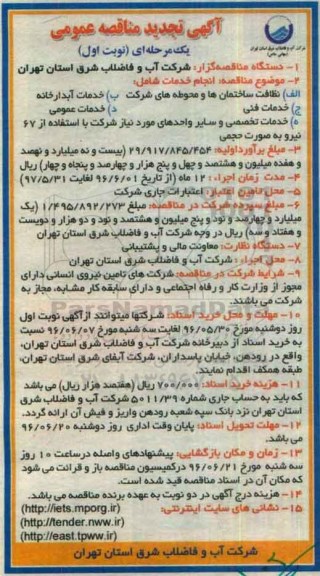 آگهی تجدید مناقصه عمومی
یک مرحله‌ای (نوبت اول)
شرکت آب و فاضلاب شرق استان تهران
۱- دستگاه مناقصه‌گزار: شرکت آب و فاضلاب شرق استان تهران
۲- موضوع مناقصه: انجام خدمات شامل:
الف) نظافت ساختمان ها و محوطه های شرکت ب) خدمات آبدارخانه
ج) خدمات فنی د) خدمات عمومی
ه) خدمات تخصصی و سایر واحدهای مورد نیاز شرکت با استفاده از ۶۷
نیرو به صورت حجمی
۳- مبلغ برآورد اولیه: ۲۹/۹۱۷/۸۴۵/۴۵۴ (بیست و نه میلیارد و نهصد
و هفده میلیون و هشتصد و چهل و پنج هزار و چهارصد و پنجاه و چهار) ریال
۴- مدت زمان اجراء: ۱۲ ماه (از تاریخ ۹۶/۶/۰۱ لغایت ۹۷/۵/۳۱)
۵- محل تامین اعتبار: اعتبارات جاری شرکت
۶- مبلغ سپرده شرکت در مناقصه: مبلغ ۱/۴۹۵/۸۹۲/۲۷۳ (یک
میلیارد و چهارصد و نود و پنج میلیون و هشتصد و نود و دو هزار و دویست
و هفتاد و سه) ریال در وجه شرکت آب و فاضلاب شرق استان تهران
۷- دستگاه نظارت: معاونت مالی و پشتیبانی
۸- محل اجراء: شرکت آب و فاضلاب شرق استان تهران
۹- شرایط شرکت در مناقصه: شرکت های تامین نیروی انسانی دارای
مجوز از وزارت کار و رفاه اجتماعی و دارای سابقه کار مشابه، مجاز به
شرکت می باشند.
۱۰- مهلت و محل خرید اسناد: شرکتها میتوانند از آگهی نوبت اول
روز دوشنبه مورخ ۹۶/۰۵/۳۰ لغایت سه شنبه مورخ ۹۶/۰۶/۰۷ نسبت
به خرید اسناد از دبیرخانه شرکت آب و فاضلاب شرق استان تهران،
واقع در رودهن، خیابان پاسداران، شرکت آبفای شرق استان تهران،
طبقه همکف اقدام نمایند.
۱۱- هزینه خرید اسناد: ۷۰۰/۰۰۰ ریال (هفتصد هزار ریال) می باشد
که باید به حساب جاری شماره ۵۰۱۱/۳۹ شرکت آب و فاضلاب شرق
استان تهران نزد بانک سپه شعبه رودهن واریز و فیش آن ارائه گردد.
۱۲- مهلت تحویل اسناد: پایان وقت اداری روز دوشنبه ۹۶/۰۶/۲۰
می باشد.
۱۳- زمان و مکان بازگشایی: پیشنهادهای واصله درساعت ۱۰ روز
سه شنبه مورخ ۹۶/۰۶/۲۱ درکمیسیون مناقصه باز و قرائت می شود
که مکان آن در اسناد مناقصه قید شده است.
۱۴- هزینه درج آگهی در دو نوبت به عهده برنده مناقصه می باشد.
۱۵- نشانی های سایت اینترنتی: (http://iets.mporg.ir)
(http://tender.nww.ir)
(http://east.tpww.ir)
شرکت آب و فاضلاب شرق استان تهران